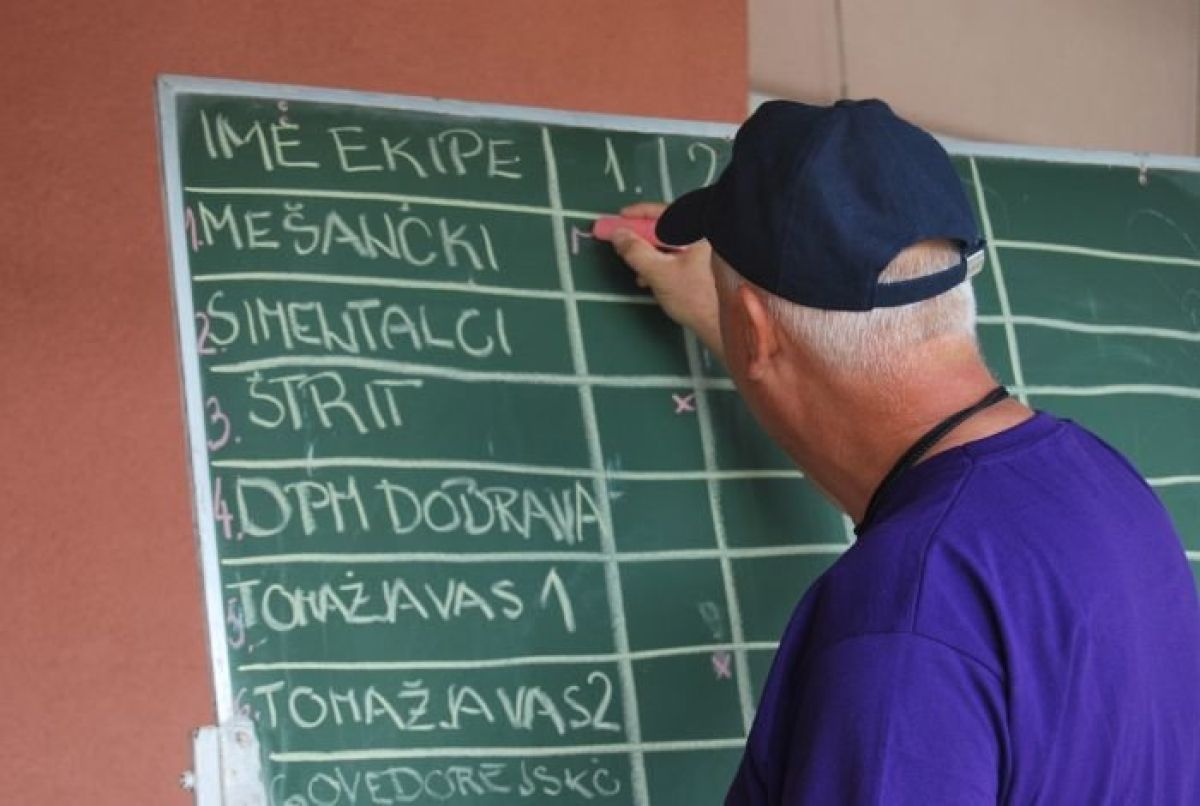 IME EKIPE 1. 2
1. MEŠANČKI
2. SIMENTALCI
3. ŠTRIT x
4. DPM DOBRAVA
5. TOMAŽJA VAS 1
6. TOMAŽJA VAS 2 x
GOVEDOREJSKO